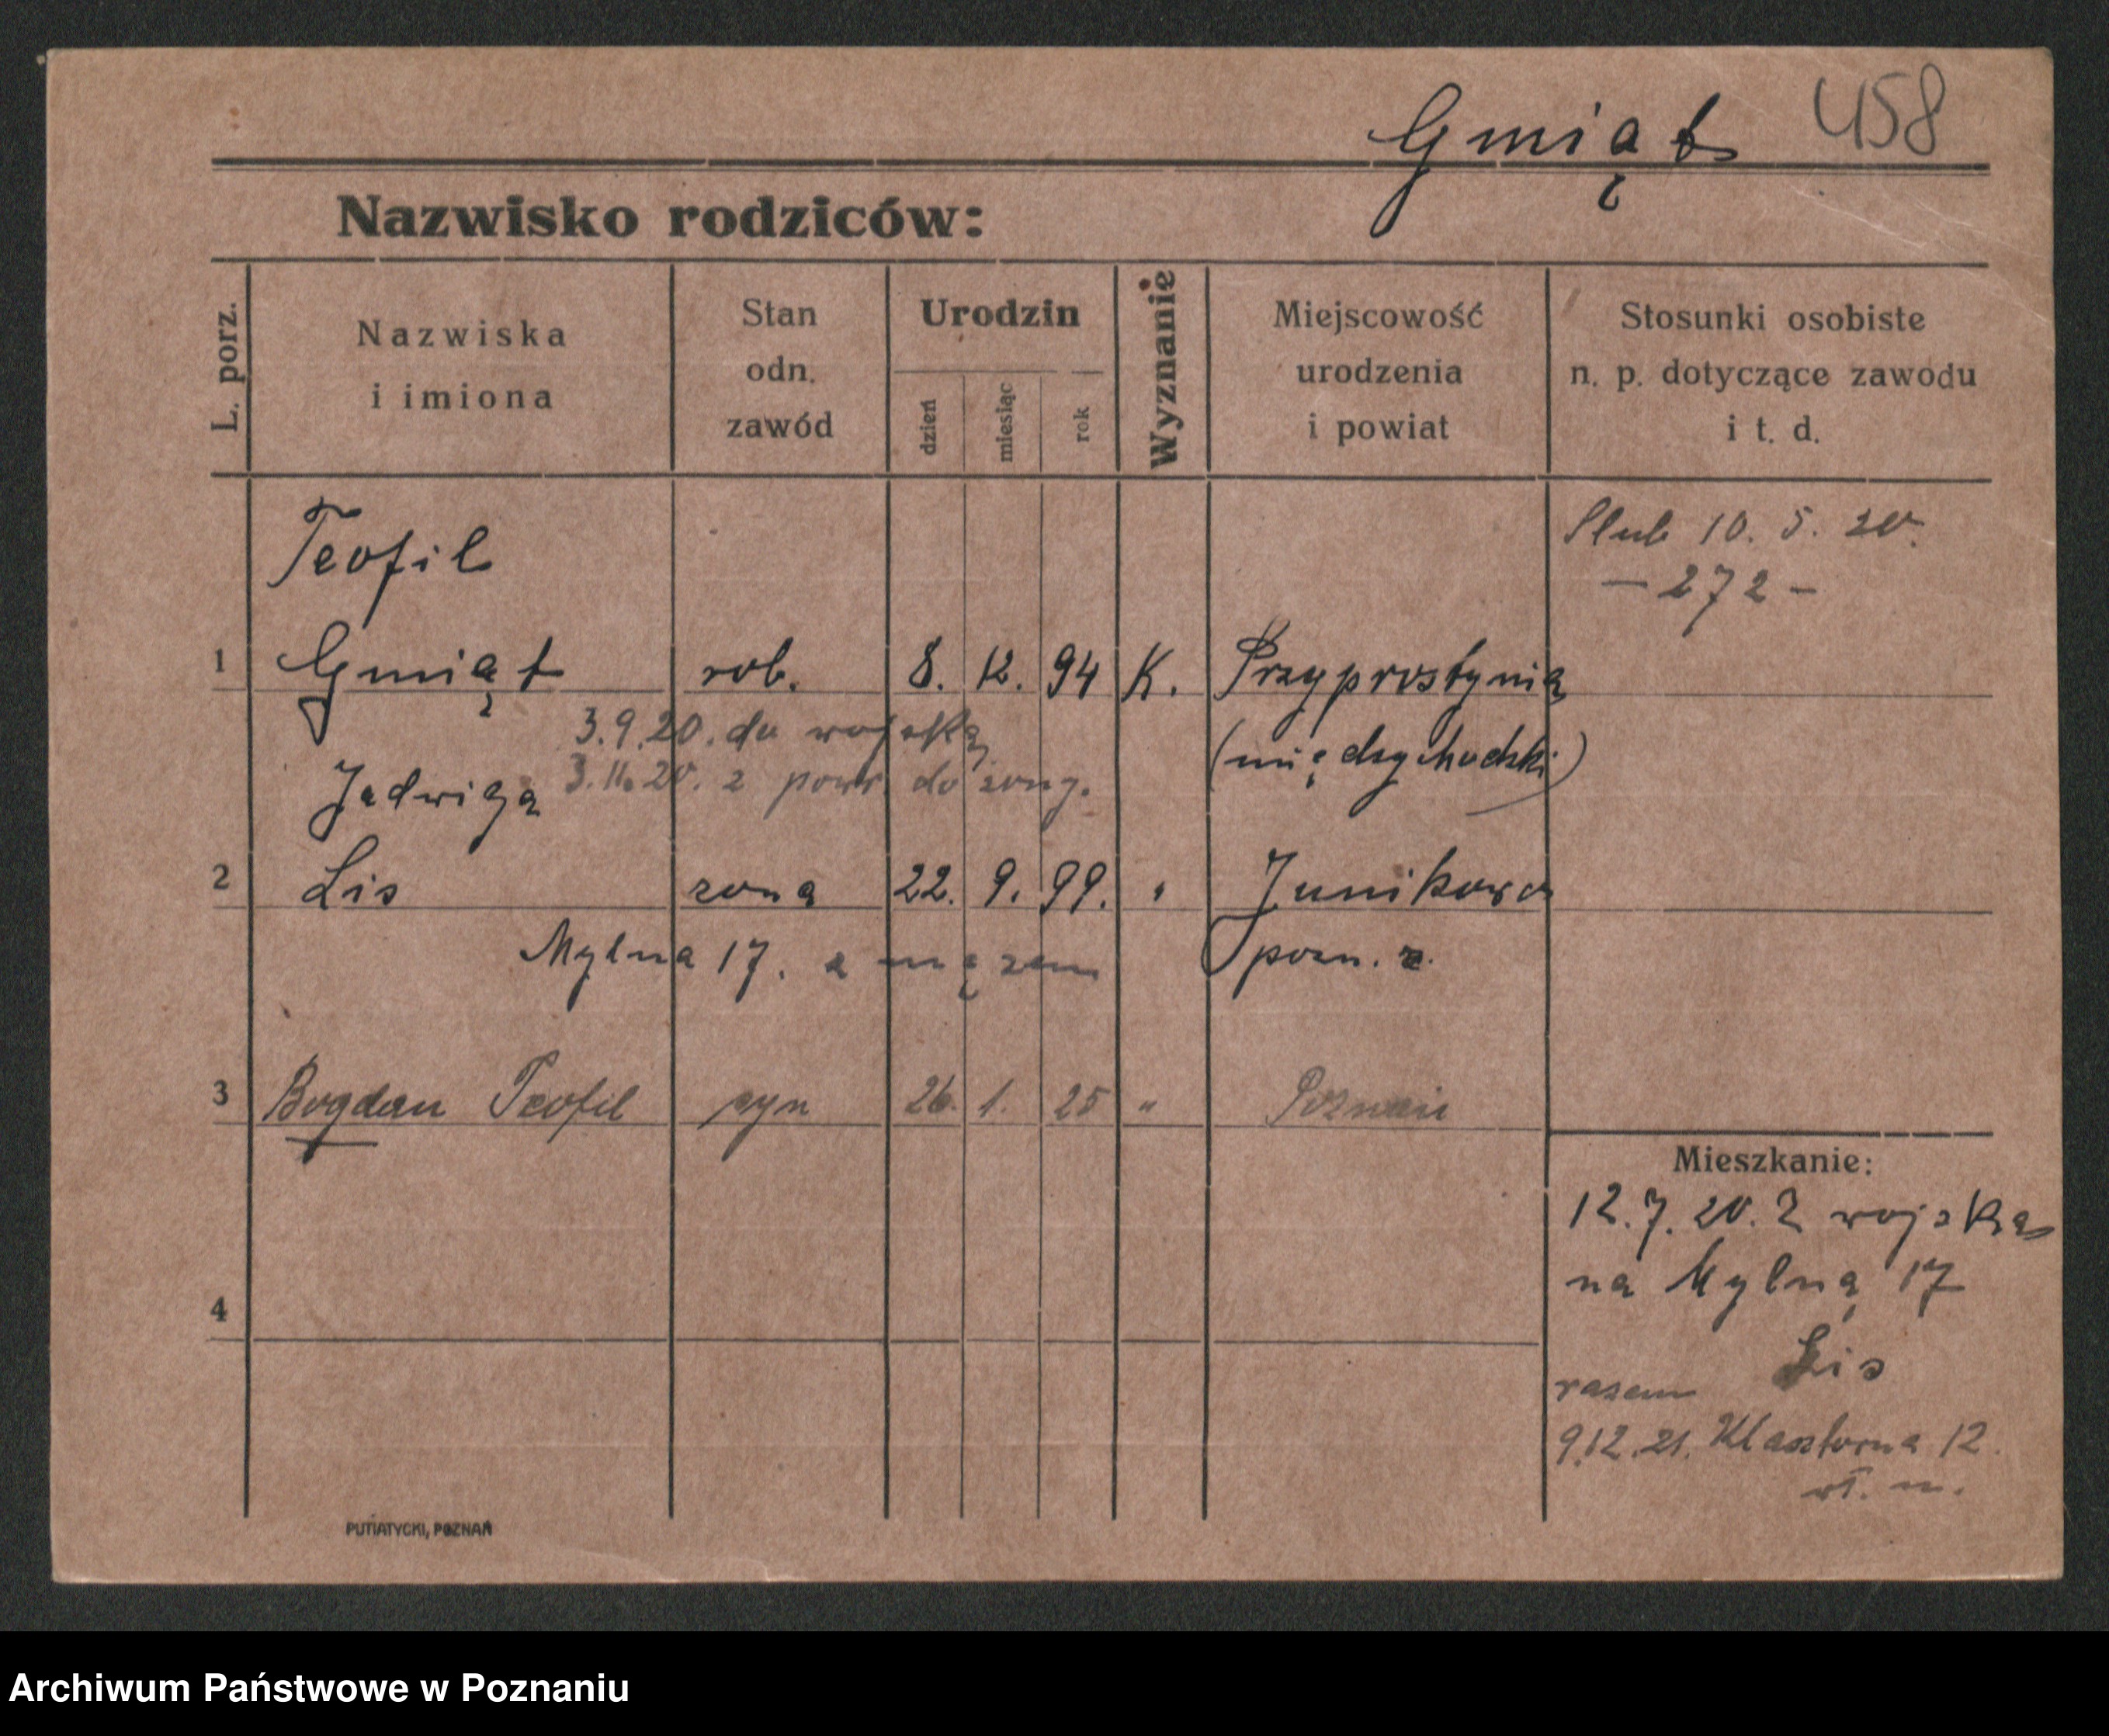 Gmiąt 458
Nazwisko rodziców:
L. porz.
Nazwiska
i imiona
Stan
odn.
zawód
Urodzin
dzień
miesiąc
rok
Wyznanie
Miejscowość
urodzenia
i powiat
Stosunki osobiste
n. p. dotyczące zawodu
i t. d.
Slub 10. 5. 20.
- 272 -
Teofil
1 Gmiąt rob. 8. 12. 94 K. Przyprostynia
3.9.20. do wojska
(międzychodzki)
Jadwiga 3.11.20. z powr. do żony.
2 Lis zona 22. 9. 99. " Junikowo
Mylna 17. z mężem pozn. z.
3 Bogdan Teofil syn 26. 1. 25 " Poznań
Mieszkanie:
12.7.20. Z wojska
na Mylną 17
4
Lis
razem
9.12.21. Klasztorna 12.
wł. m.
PUTIATYCKI, POZNAŃ
Archiwum Państwowe w Poznaniu